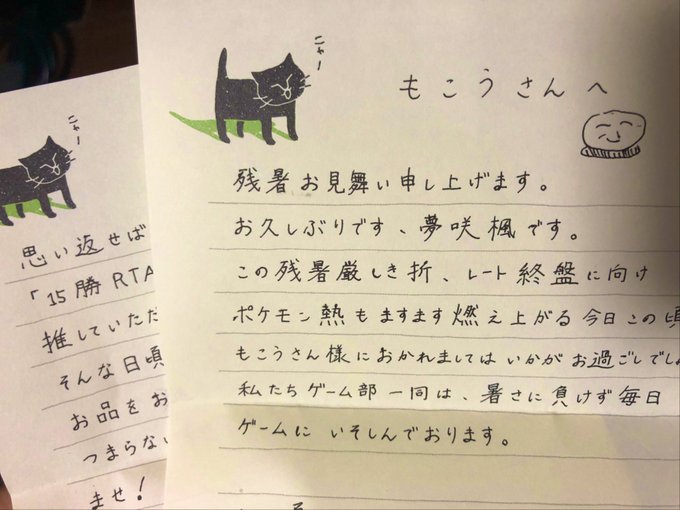 ニャー
もこうさんへ
残暑お見舞い申し上げます。
お久しぶりです、夢咲楓です。
この残暑厳しき折、レート終盤に向け
ポケモン熱もますます燃え上がる今日この頃
もこうさん様におかれましてはいかがお過ごしでしょ
私たちゲーム部一同は、暑さに負けず毎日
ゲームにいそしんでおります。
ニャー
思い返せば
「15勝RTA
推していただ
そんな日頃
お品をお
つまらない
ませ！